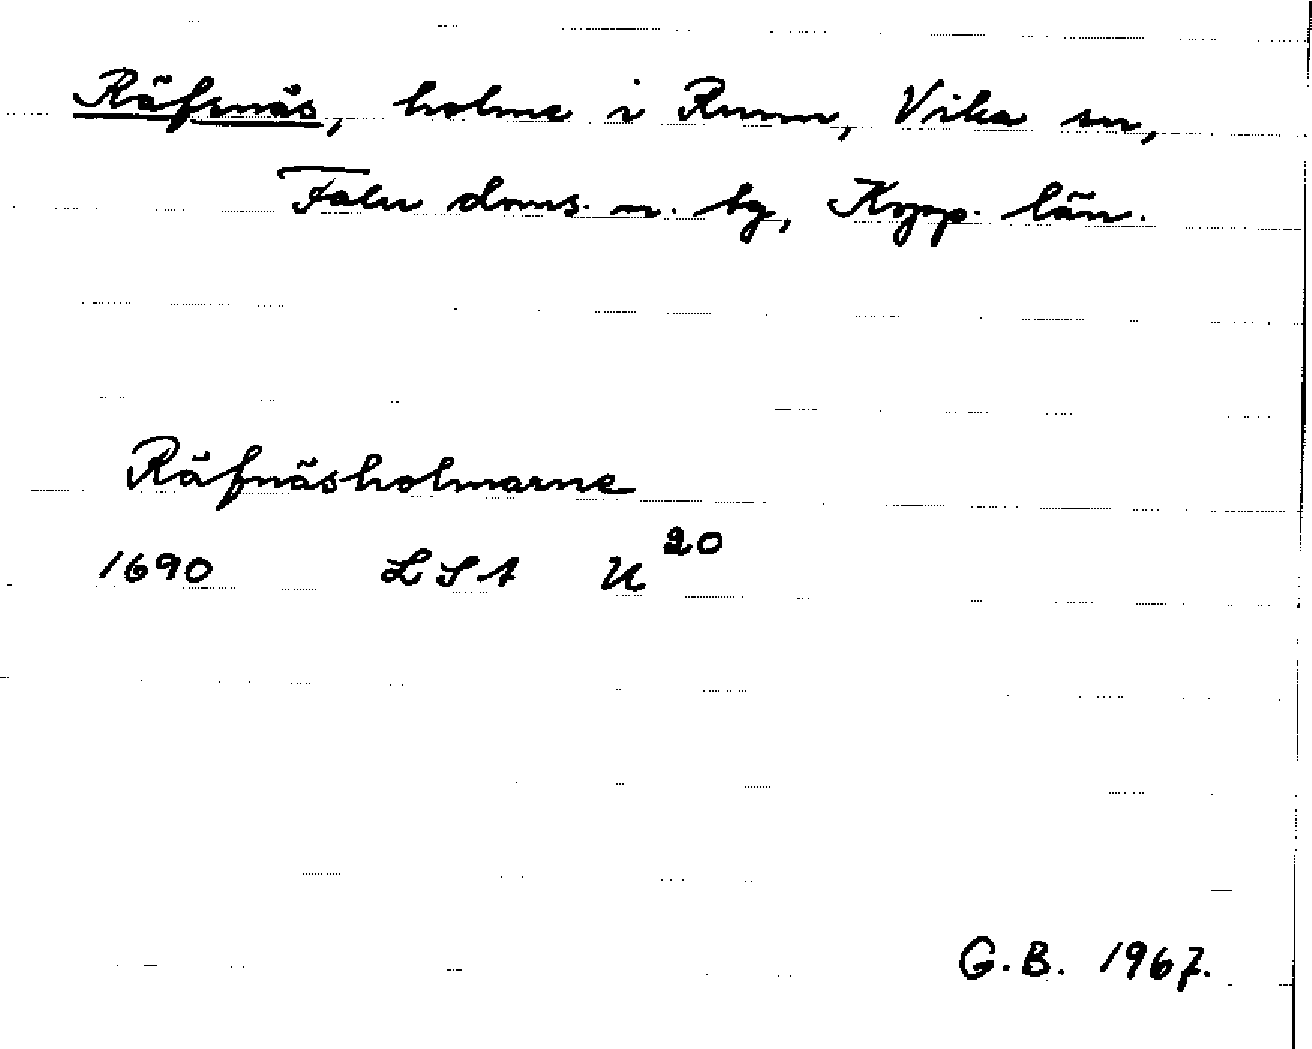 Räfsnäs, holme i Runn, Vika sn,
Falu doms. n. tg, Kopp. län.
Räfnäsholmarne
1690 LSA U 20
G.B. 1967.